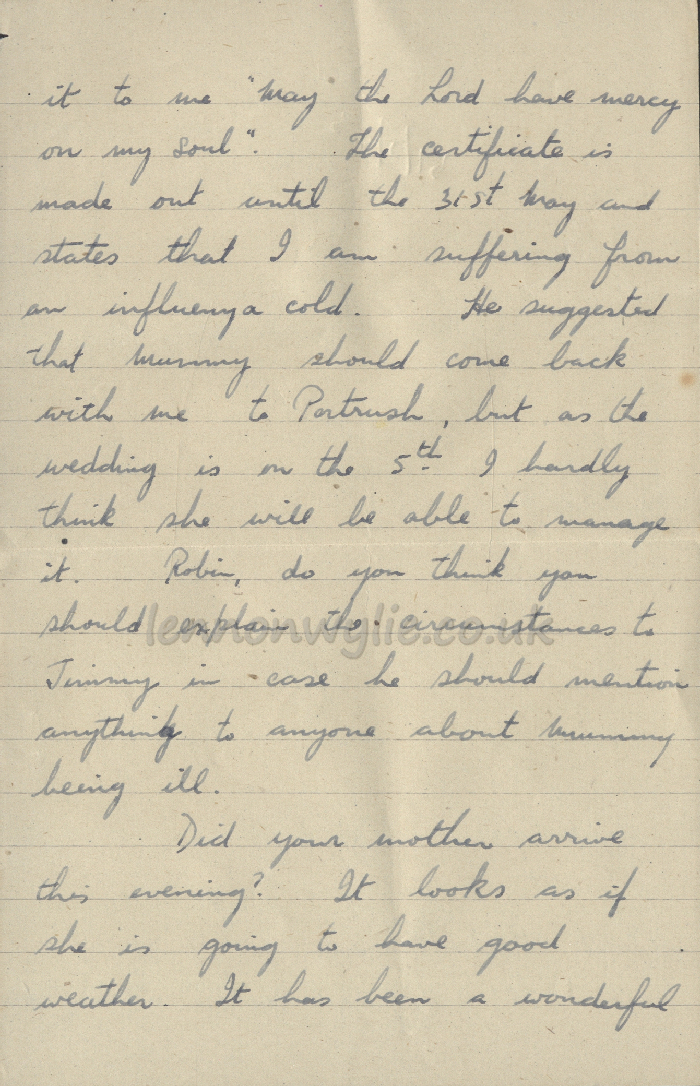 it to me "May the Lord have mercy
on my soul". The certificate is
made out until the 31st May and
states that I am suffering from
an influenza cold. He suggested
that Mummy should come back
with me to Portrush, but as the
wedding is on the 5th I hardly
think she will be able to manage
it. Robin, do you think you
should explain the circumstances to
lennonwylie.co.uk
Jimmy in case he should mention
anything to anyone about Mummy
being ill.
Did your mother arrive
this evening? It looks as if
she is going to have good
weather. It has been a wonderful